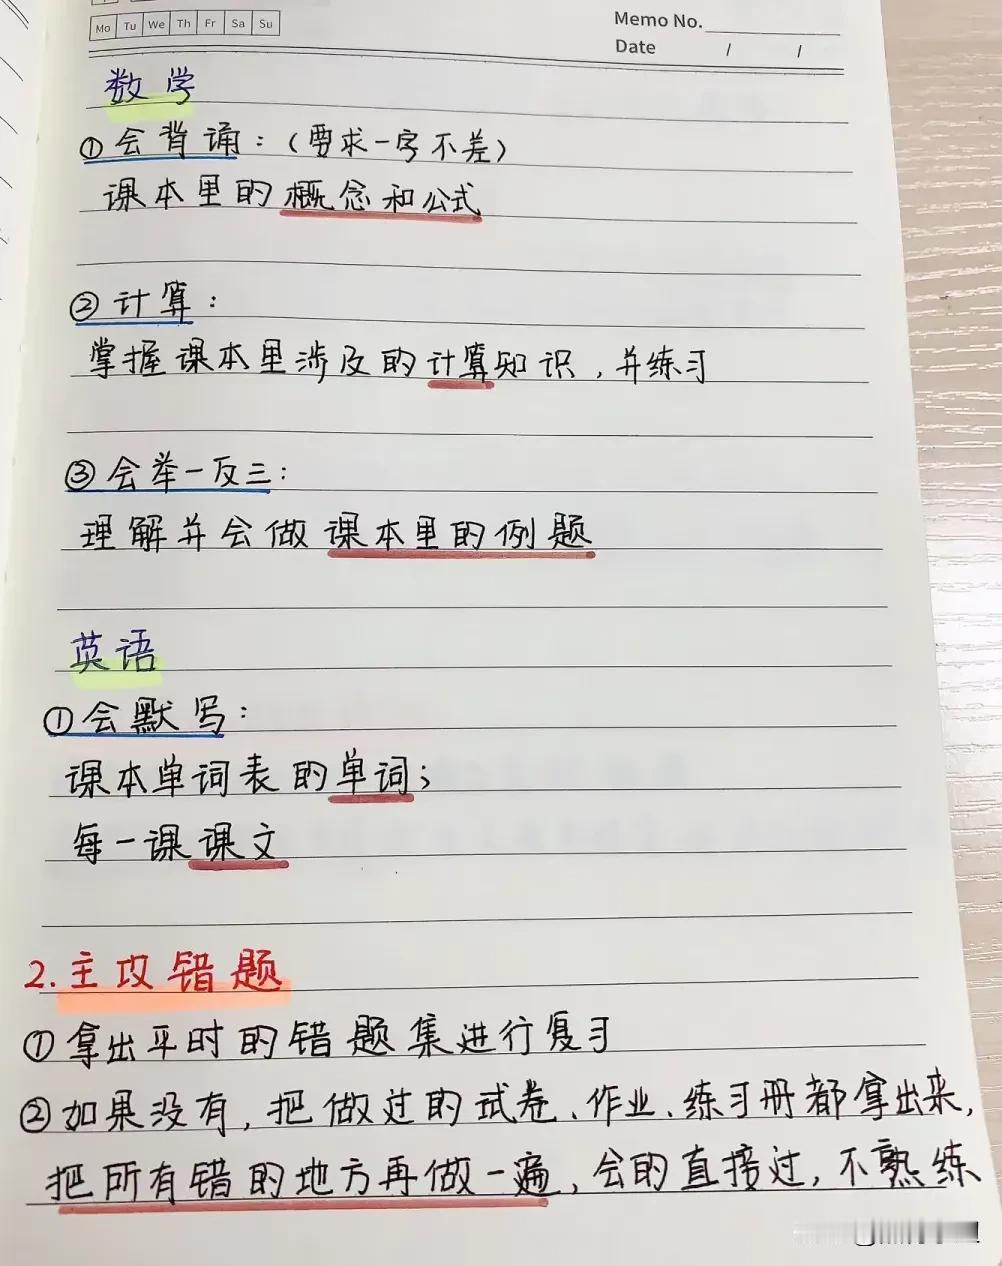 Mo Tu We Th Fr Sa Su
Memo No.
Date / /
数学
①会背诵：（要求一字不差）
课本里的概念和公式
②计算：
掌握课本里涉及的计算知识，并练习
③会举一反三：
理解并会做课本里的例题
英语
①会默写：
课本单词表的单词；
每一课课文
2.主攻错题
①拿出平时的错题集进行复习
②如果没有，把做过的试卷、作业、练习册都拿出来，
把所有错的地方再做一遍，会的直接过，不熟练